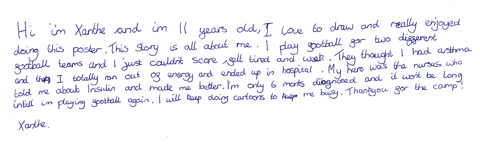 Hi im Xanthe and im 11 years old, I Love to draw and really enjoyed
doing this poster. This story is all about me. I play football for two different
football teams and I just couldnt score, felt tired and weak. They thought I had asthma
and I totally ran out of energy and ended up in hospital. My hero was the nurses who
told me about Insulin and made me better. I'm only 6 months diagnosed and it won't be long
intill im playing football again. I will keep doing cartoons to keep me busy. Thankyou for the camp!
Xanthe.